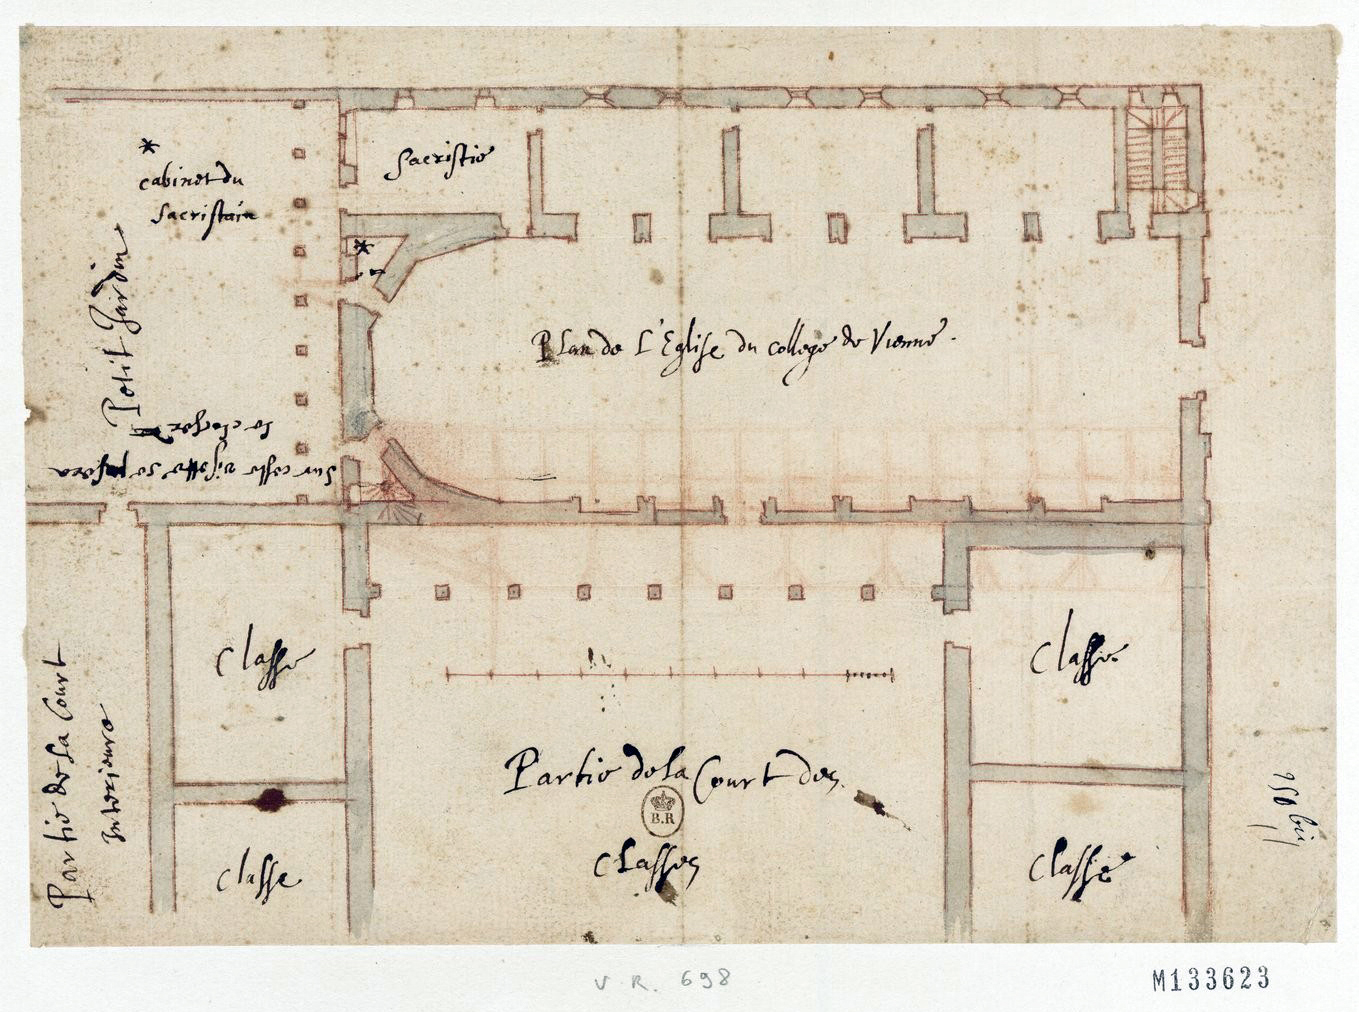 *
cabinet du
Sacristain
Sacristie
*
Petit Jardin
Plan de L'Eglise du college de Vienne.
Sur ceste visette se fera
le clocher
Classe
Classe
Partie de la Court des
B.R
Classes
Partie de la Court
Interieure
Classe
Classe
95 bis
V R. 698
M133623